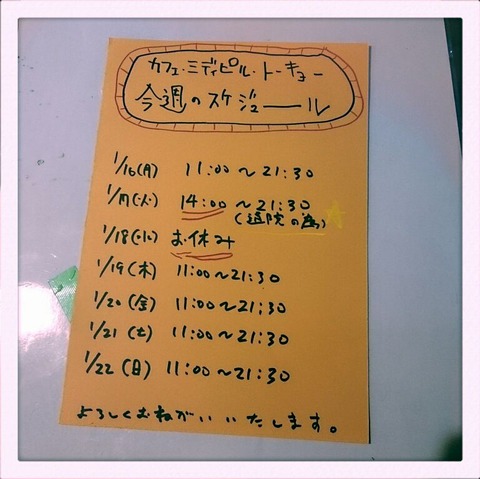 カフェ・ミディピル・トーキョー
今週のスケジュール
1/16(月) 11:00~21:30
1/17(火) 14:00~21:30
(通院の為)
1/18(水) お休み
1/19(木) 11:00~21:30
1/20(金) 11:00~21:30
1/21(土) 11:00~21:30
1/22(日) 11:00~21:30
よろしくおねがいいたします。